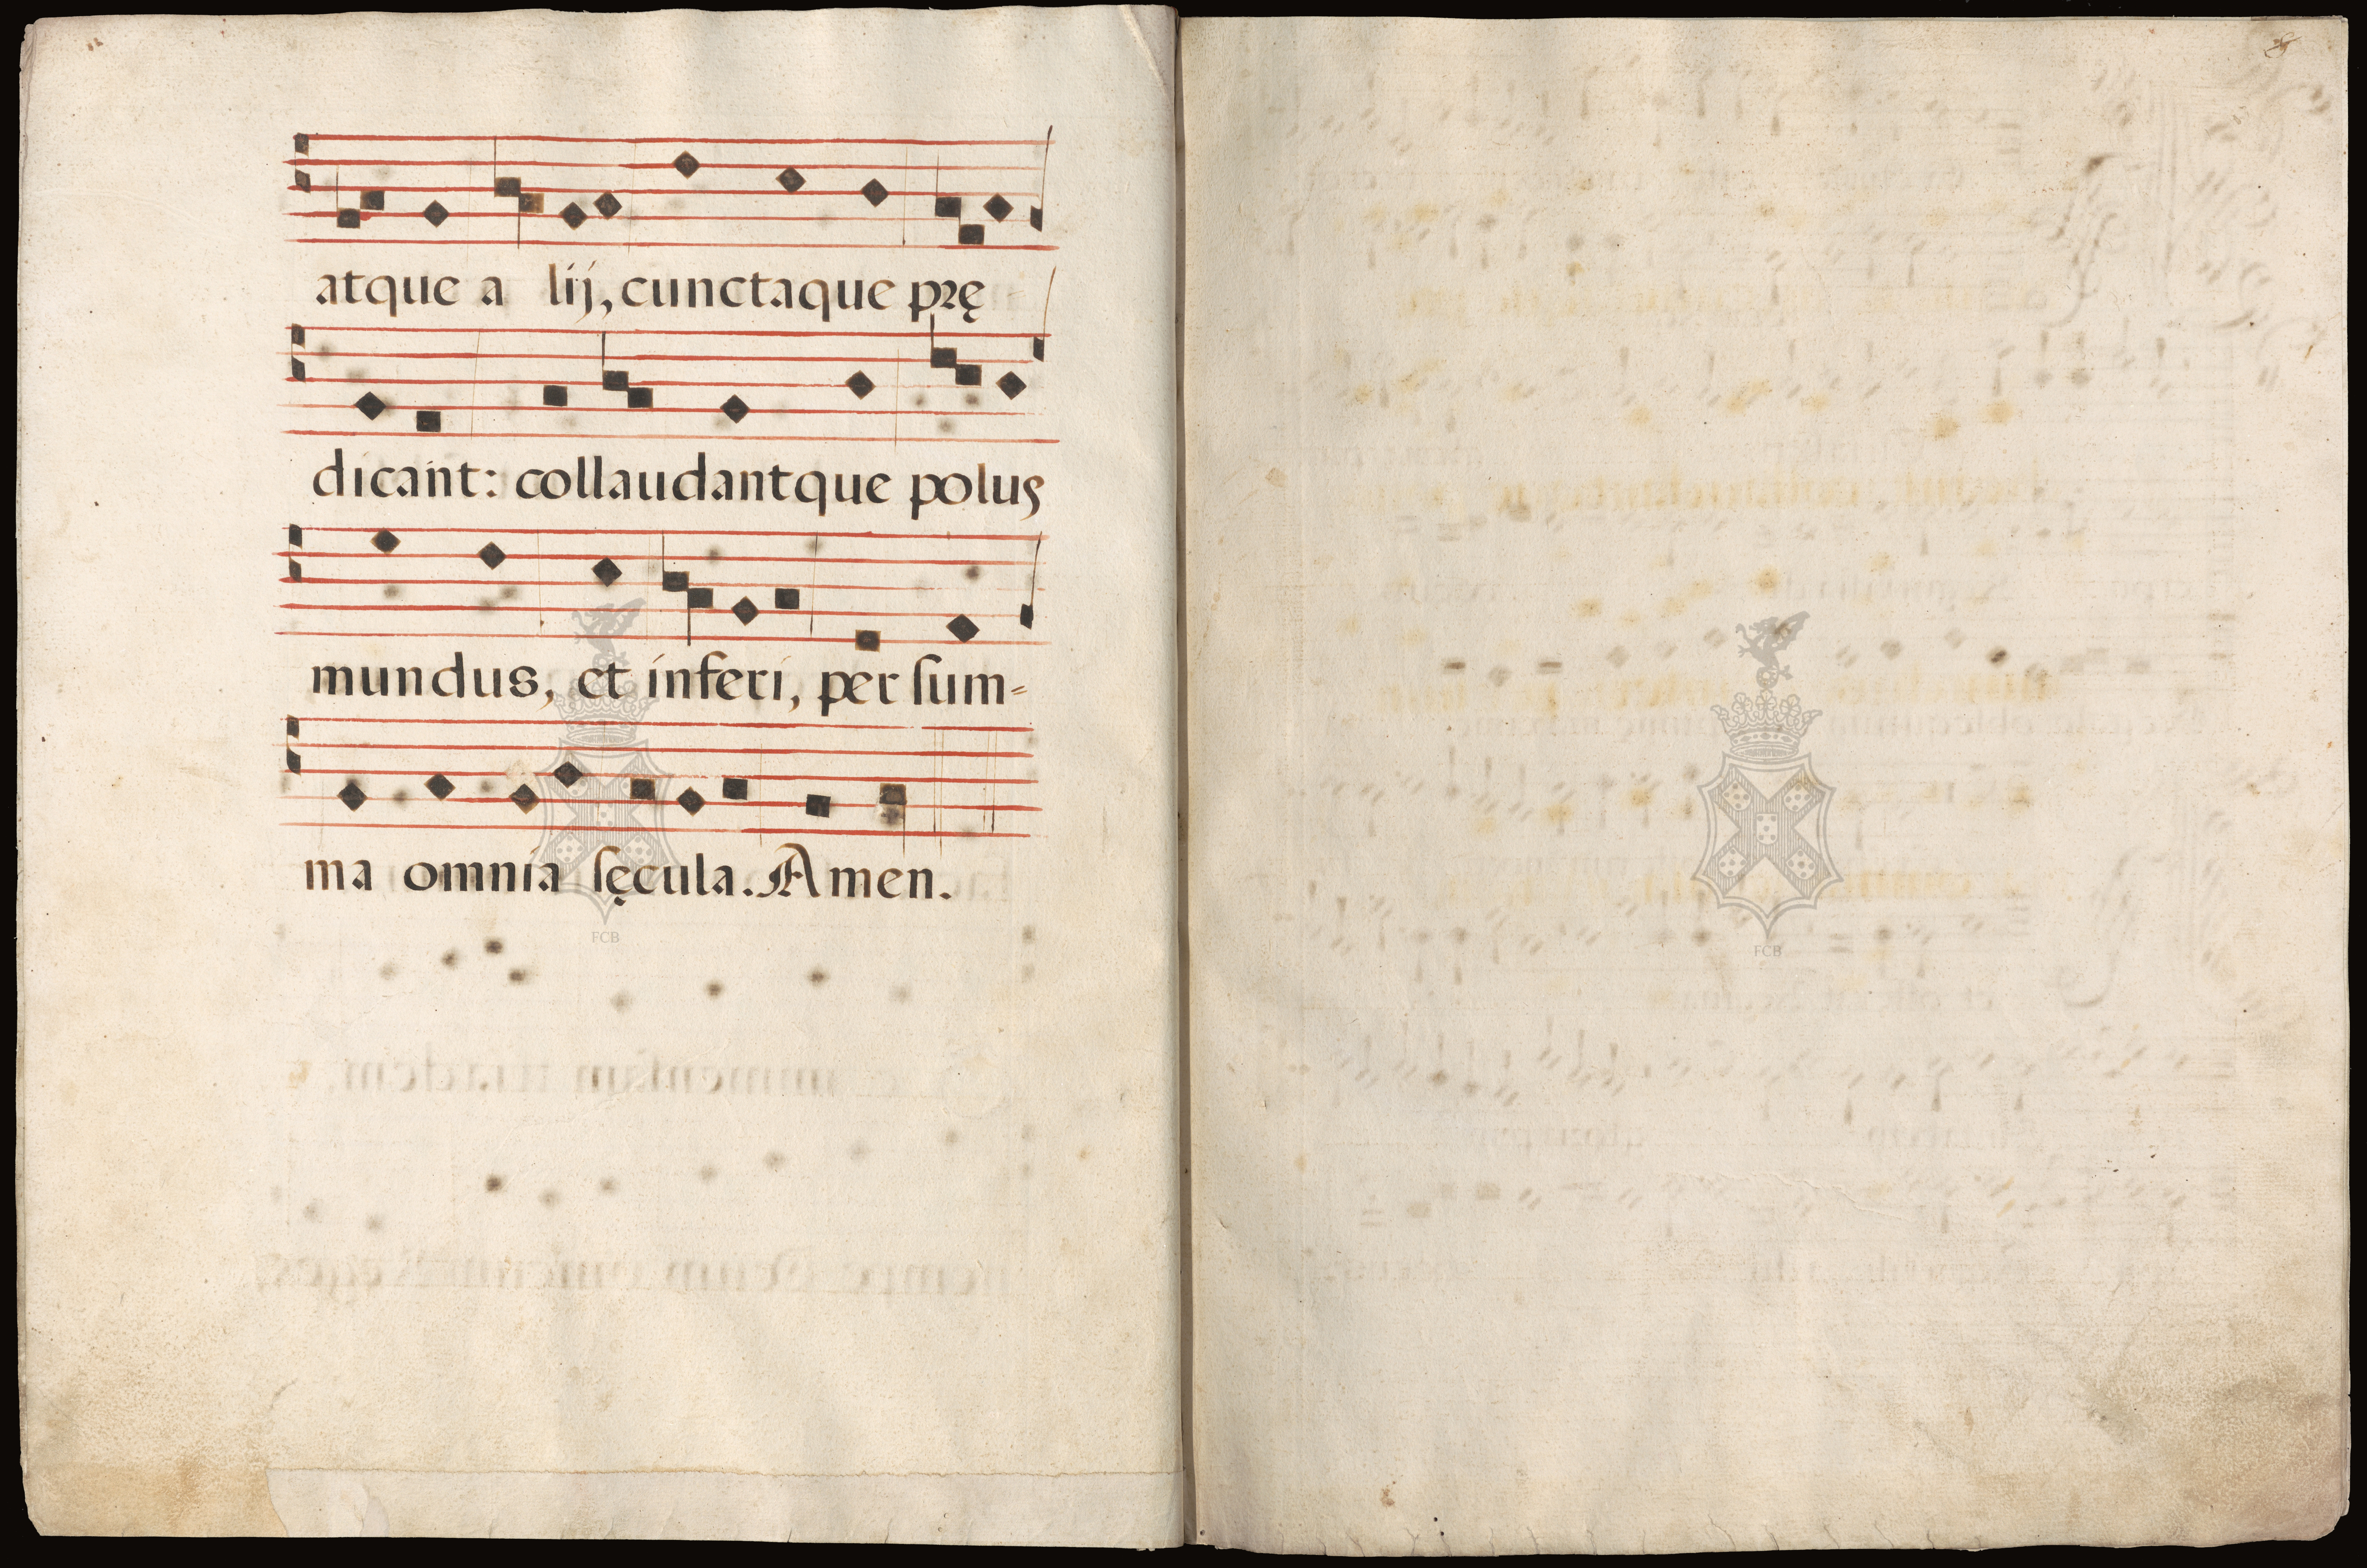 atque a lij, cunctaque prę
dicant: collaudantque polus
mundus, et inferi, per ſum=
ma omnia ſęcula. Amen.
FCB
FCB